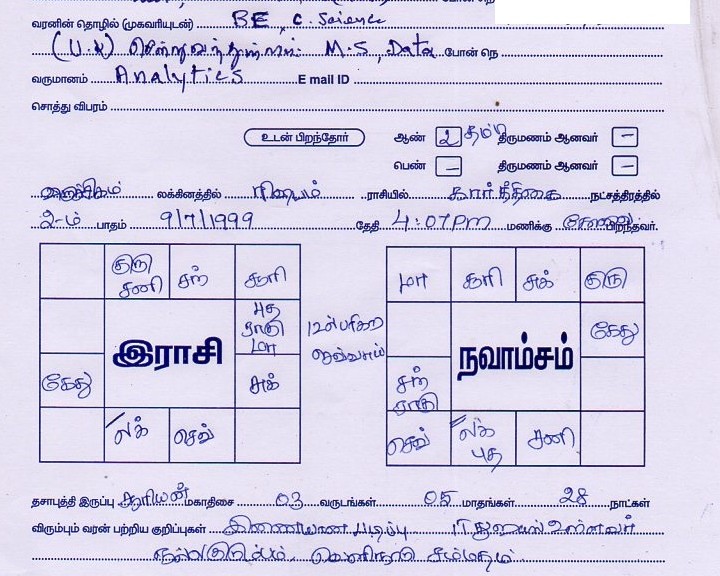 வரனின் தொழில் (முகவரியுடன்) BE, C. Science
(U.K) M.S, Data போன் நெ
வருமானம் Analytics E mail ID
சொத்து விபரம்
உடன் பிறந்தோர் ஆண் 2 தம்பி திருமணம் ஆனவர் –
பெண் – திருமணம் ஆனவர் –
விருச்சிகம் லக்கினத்தில் ரிஷபம் ராசியில் கார்த்திகை நட்சத்திரத்தில்
2-ம் பாதம் 9/7/1999 தேதி 4:07PM மணிக்கு பிறந்தவர்.
குரு சனி சந் சூரி
புத ராகு மா
இராசி
கேது சுக்
லக் செவ்
மா சூரி சுக் குரு
கேது
நவாம்சம்
சந் ராகு
செவ் லக் புத சனி
தசாபுத்தி இருப்பு சூரியன் மகாதிசை 03 வருடங்கள் 05 மாதங்கள் 28 நாட்கள்
விரும்பும் வரன் பற்றிய குறிப்புகள் இணையான படிப்பு IT துறையில் உள்ளவர்
நல்லகுடும்பம், வெளிநாடு சம்மதம்